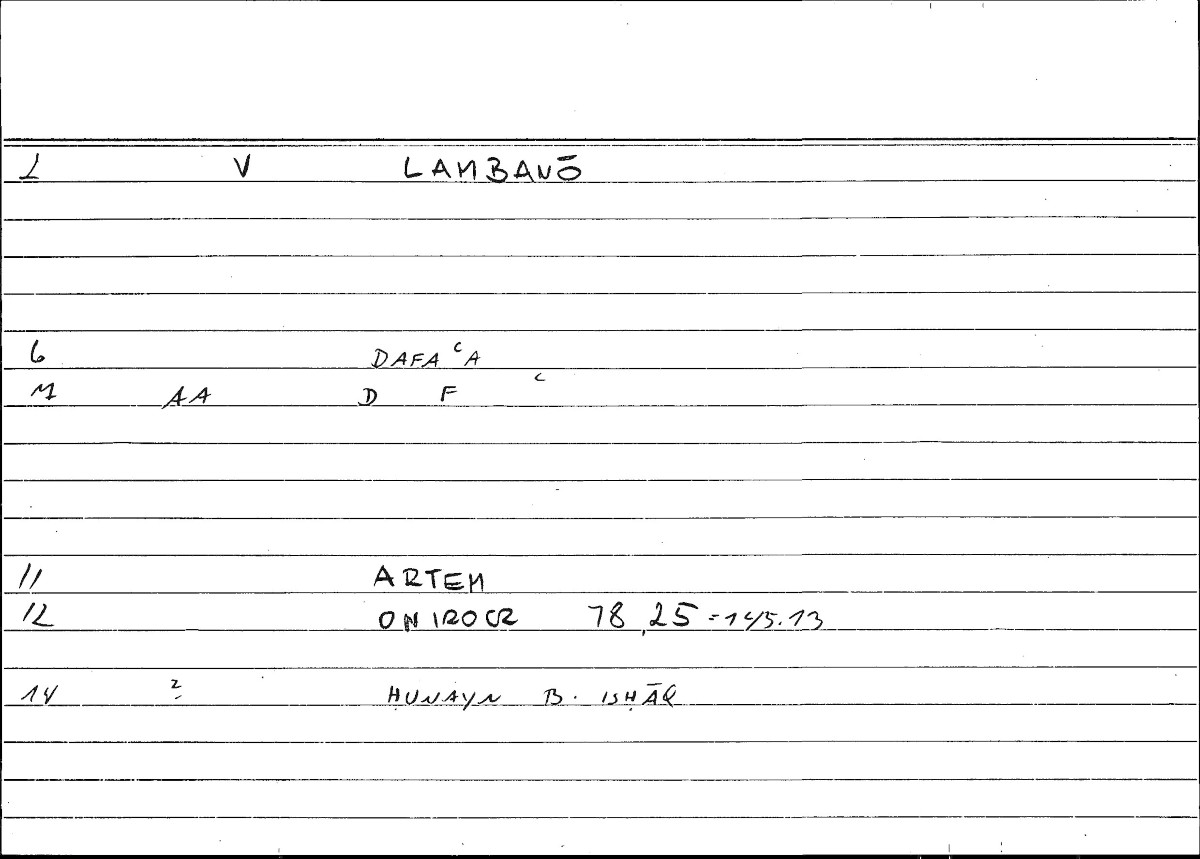 1 V LAMBANŌ
6 DAFAʿA
M AA D F ʿ
11 ARTEM
12 ONIROCR 78,25=145.13
14 2 ḤUNAYN B. ISḤĀQ